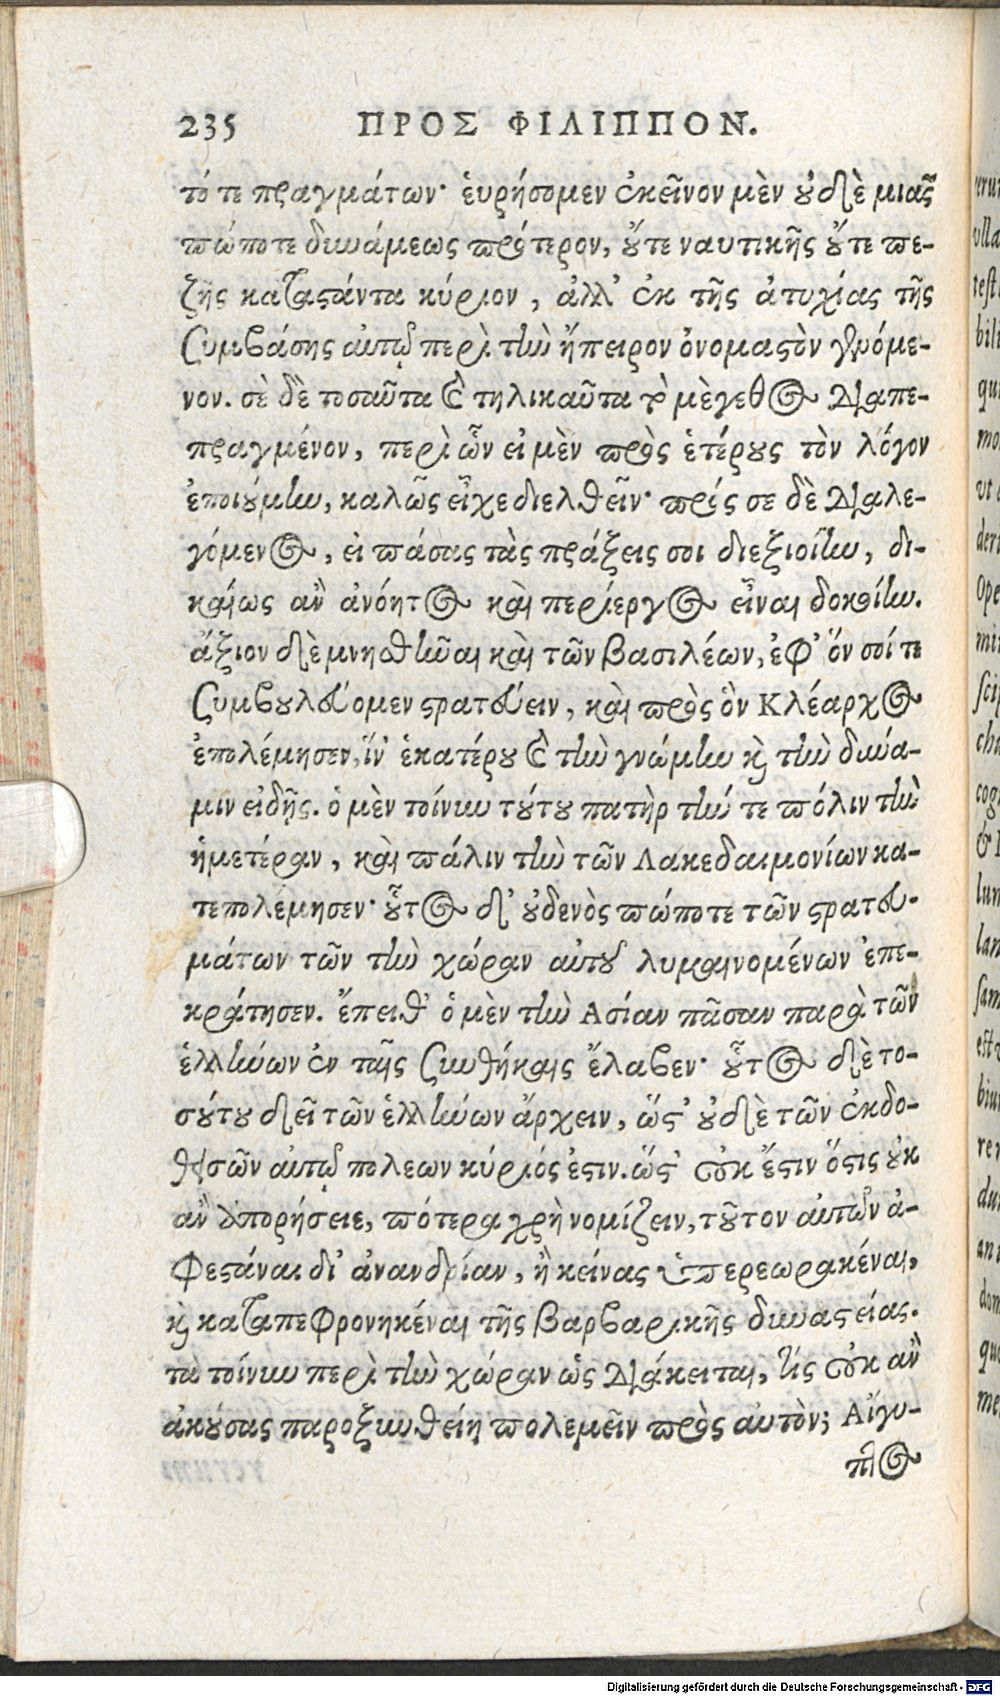 235 ΠΡΟΣ ΦΙΛΙΠΠΟΝ.
τό τε πραγμάτων· ἑυρήσομεν ἐκεῖνον μὲν οὐδὲ μιᾶς
πώποτε δυνάμεως πρότερον, οὔτε ναυτικῆς οὔτε πε-
ζῆς καταστάντα κύριον, ἀλλ' ἐκ τῆς ἀτυχίας τῆς
συμβάσης αὐτῷ περὶ τὴν ἤπειρον ὀνομαστὸν γενόμε-
νον. σὲ δὲ τοσαῦτα καὶ τηλικαῦτα τὸ μὲγεθος διαπε-
πραγμένον, περὶ ὧν εἰ μὲν πρὸς ἑτέρους τὸν λόγον
ἐποιούμην, καλῶς εἶχε διελθεῖν· πρός σε δὲ διαλε-
γόμενος, εἰ πάσας τὰς πράξεις σοι διεξιοίην, δι-
καίως ἂν ἀνόητος καὶ περίεργος εἶναι δοκοίην.
ἄξιον δὲ μνησθῆναι καὶ τῶν βασιλέων, ἐφ' ὅν σοί τε
συμβουλεύομεν στρατεύειν, καὶ πρὸς ὃν Κλέαρχος
ἐπολέμησεν, ἵν' ἑκατέρου καὶ τὴν γνώμην καὶ τὴν δύνα-
μιν εἰδῇς. ὁ μὲν τοίνυν τούτου πατὴρ τήν τε πόλιν τὴν
ἡμετέραν, καὶ πάλιν τὴν τῶν Λακεδαιμονίων κα-
τεπολέμησεν· οὗτος δ' οὐδενὸς πώποτε τῶν στρατευ-
μάτων τῶν τὴν χώραν αὐτοῦ λυμαινομένων ἐπε-
κράτησεν. ἔπειθ' ὁ μὲν τὴν Ασίαν πᾶσαν παρὰ τῶν
ἑλλήνων ἐν ταῖς συνθήκαις ἔλαβεν· οὗτος δὲ το-
σούτου δεῖ τῶν ἑλλήνων ἄρχειν, ὥστ' οὐδὲ τῶν ἐκδο-
θεισῶν αὐτῷ πολεων κύριός ἐστιν. ὥστ' οὐκ ἔστιν ὅστις οὐκ
ἂν ἀπορήσειε, πότερα χρὴ νομίζειν, τοῦτον αὐτῶν ἀ-
φεστάναι δι' ἀνανδρίαν, ἢ κείνας ὑπερεωρακέναι,
καὶ καταπεφρονηκέναι τῆς βαρβαρικῆς δυναστείας.
τὰ τοίνυν περὶ τὴν χώραν ὡς διάκειται, τίς οὐκ ἂν
ἀκούσας παροξυνθείη πολεμεῖν πρὸς αὐτὸν; Αἴγυ-
πτος
Digitalisierung gefördert durch die Deutsche Forschungsgemeinschaft - DFG